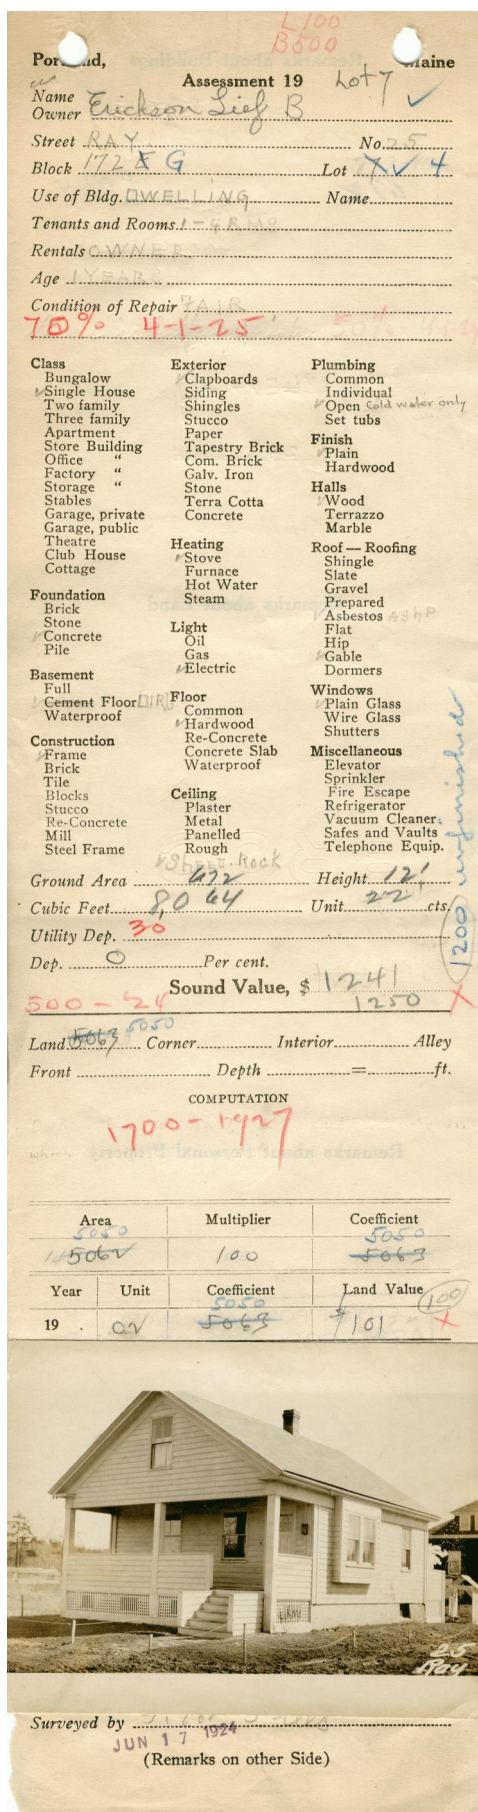 L 100
B 500
Portland, Maine
Assessment 19 Lot 7
Name
Owner Erickson Lief B
Street RAY No. 25
Block 172 E G Lot 4
Use of Bldg. DWELLING Name
Tenants and Rooms 1-4 RMS
Rentals OWNER
Age 1 YEAR
Condition of Repair FAIR
70% 4-1-25
Class
Bungalow
Single House
Two family
Three family
Apartment
Store Building
Office "
Factory "
Storage "
Stables
Garage, private
Garage, public
Theatre
Club House
Cottage
Foundation
Brick
Stone
Concrete
Pile
Basement
Full
Cement Floor DIRT
Waterproof
Construction
Frame
Brick
Tile
Blocks
Stucco
Re-Concrete
Mill
Steel Frame
Exterior
Clapboards
Siding
Shingles
Stucco
Paper
Tapestry Brick
Com. Brick
Galv. Iron
Stone
Terra Cotta
Concrete
Heating
Stove
Furnace
Hot Water
Steam
Light
Oil
Gas
Electric
Floor
Common
Hardwood
Re-Concrete
Concrete Slab
Waterproof
Ceiling
Plaster
Metal
Panelled
Rough
Sheet Rock
Plumbing
Common
Individual
Open Cold water only
Set tubs
Finish
Plain
Hardwood
Halls
Wood
Terrazzo
Marble
Roof — Roofing
Shingle
Slate
Gravel
Prepared
Asbestos ASHP
Flat
Hip
Gable
Dormers
Windows
Plain Glass
Wire Glass
Shutters
Miscellaneous
Elevator
Sprinkler
Fire Escape
Refrigerator
Vacuum Cleaner
Safes and Vaults
Telephone Equip.
1200 unfinished
Ground Area 672 Height 12'
Cubic Feet 8,064 Unit 22 cts.
Utility Dep. 30
Dep. 0 Per cent.
Sound Value, $ 1241
500 - '24 1250 X
Land 5063 5050 Corner Interior Alley
Front Depth = ft.
COMPUTATION
1700 - 1927
Area Multiplier Coefficient
5050 5050
5062 100 5063
Year Unit Coefficient Land Value 100
5050
19 02 5063 $101 X
25
Ray
Surveyed by
JUN 17 1924
(Remarks on other Side)